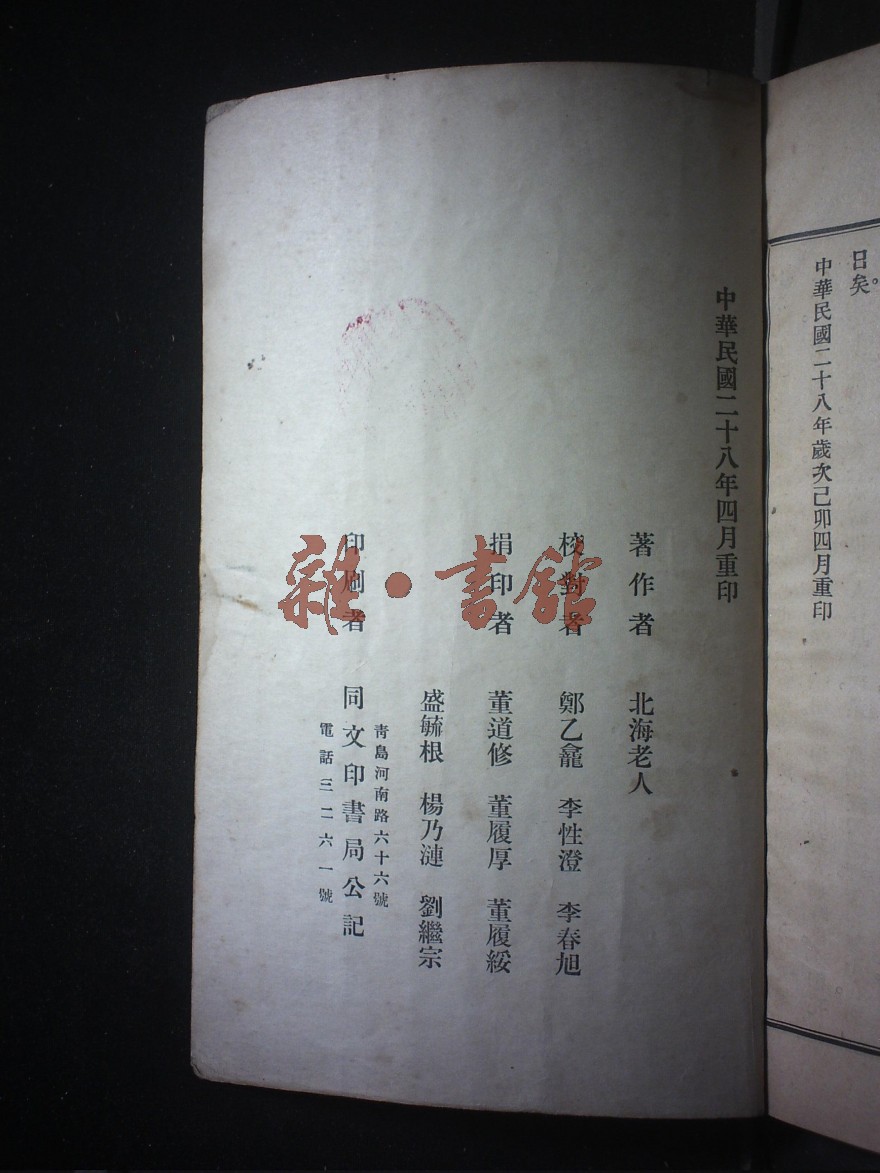 日矣。
中華民國二十八年歲次己卯四月重印
中華民國二十八年四月重印
著作者 北海老人
校對者 鄭乙龕 李性澄 李春旭
捐印者 董道修 董履厚 董履綏
盛毓根 楊乃漣 劉繼宗
青島河南路六十六號
印刷者 同文印書局公記
電話三二六一號
雜·書館